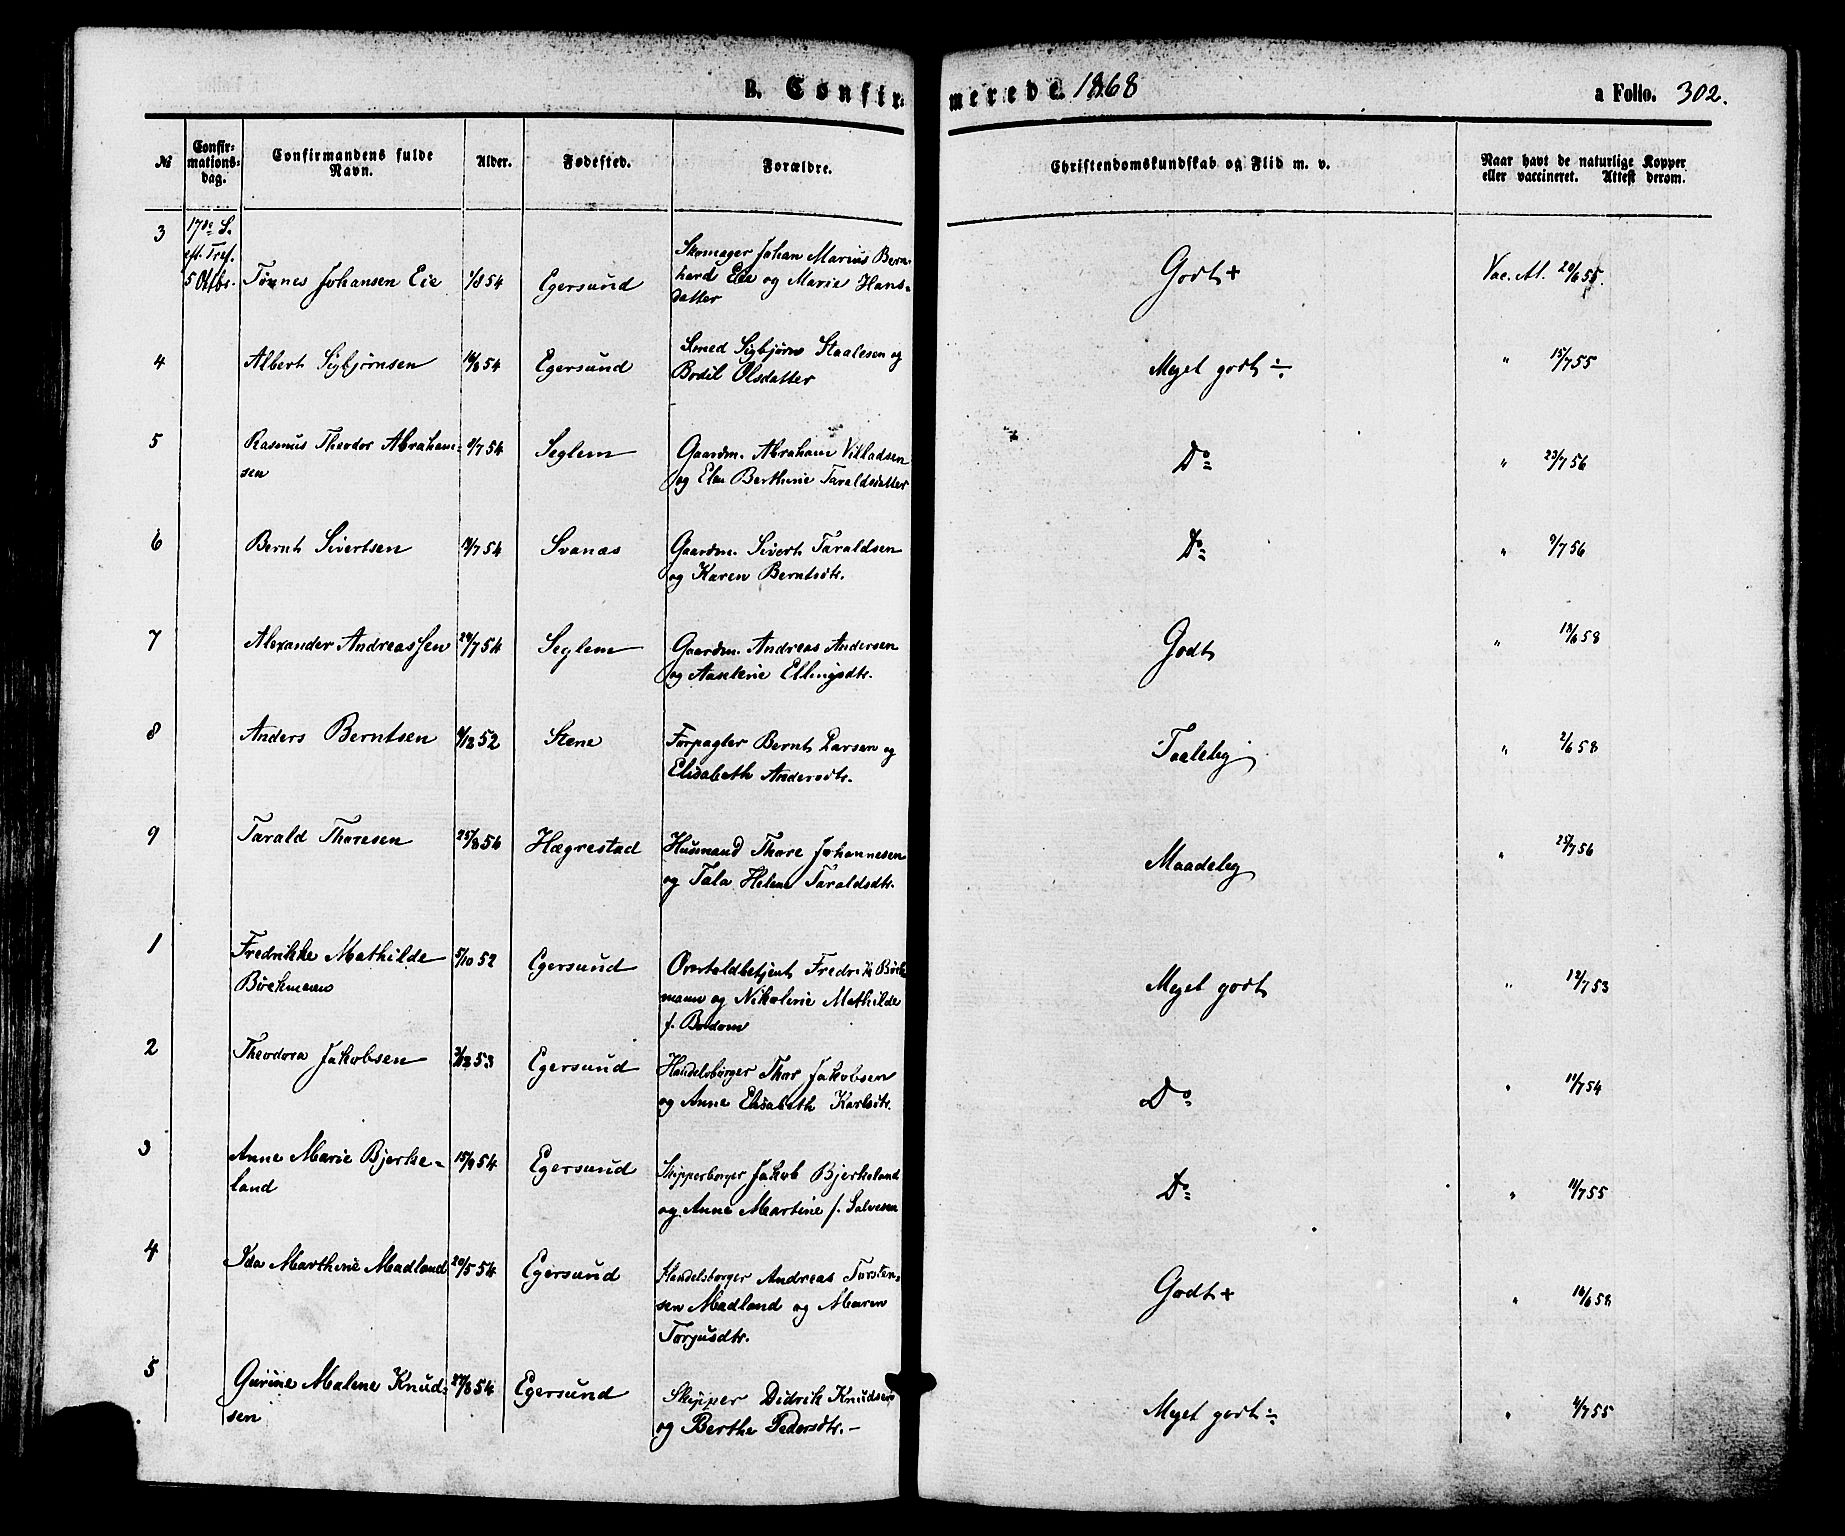 B. Confirmerede 1868 a Folio. 302.
№ Confirmations-dag. Confirmandens fulde Navn. Alder. Fødested. Forældre. Christendomskundskab og Flid m. v. Naar havt de naturlige Kopper eller vaccineret. Attest derom.
3 17de S. eft. Tref. 5 Oktbr. Tønnes Johansen Eie 1/8 54 Egersund Skomager Johan Marius Bernhard Eie og Marie Hansdatter Godt + Vac. At. 20/6 55.
4 Albert Sigbjørnsen 16/6 54 Egersund Smed Sigbjørn Staalesen og Bodil Olsdatter Meget godt ÷ " 15/7 55
5 Rasmus Theodor Abrahamsen /7 54 Seglem Gaardm. Abraham Villadsen og Elen Berthine Taraldsdatter Do " 23/7 56
6 Bernt Sivertsen /7 54 Svanas Gaardm. Sivert Taraldsen og Karen Berntsdtr. Do " 9/7 56
7 Alexander Andreassen 29/7 54 Seglem Gaardm. Andreas Andersen og Aaseline Ellingsdtr. Godt " 13/6 58
8 Anders Berntsen /12 52 Stene Forpagter Bernt Larsen og Elisabeth Andersdtr. Taalelig " 2/6 58
9 Tarald Thoresen 25/8 54 Hægrestad Husmand Thore Johannesen og Tala Helene Taraldsdtr. Maadelig " 25/7 56
1 Fredrikke Mathilde Böckmann 5/10 52 Egersund Overtoldbetjent Fredrik Böckmann og Nikoline Mathilde f. Bodom Meget godt " 12/7 53
2 Theodora Jakobsen /12 53 Egersund Handelsborger Thor Jakobsen og Anne Elisabeth Karlsdtr. Do " 11/7 54
3 Anne Marie Bjerkeland 15/9 54 Egersund Skipperborger Jakob Bjerkeland og Anne Martine f. Salvesen Do " 11/7 55
4 Ida Marthine Madland 20/5 54 Egersund Handelsborger Andreas Torstensen Madland og Maren Torgusdtr. Godt + " 16/6 58
5 Gurine Malene Knudsen 27/8 54 Egersund Skipper Didrik Knudsen og Berthe Pedersdtr. – Meget godt ÷ " /7 55